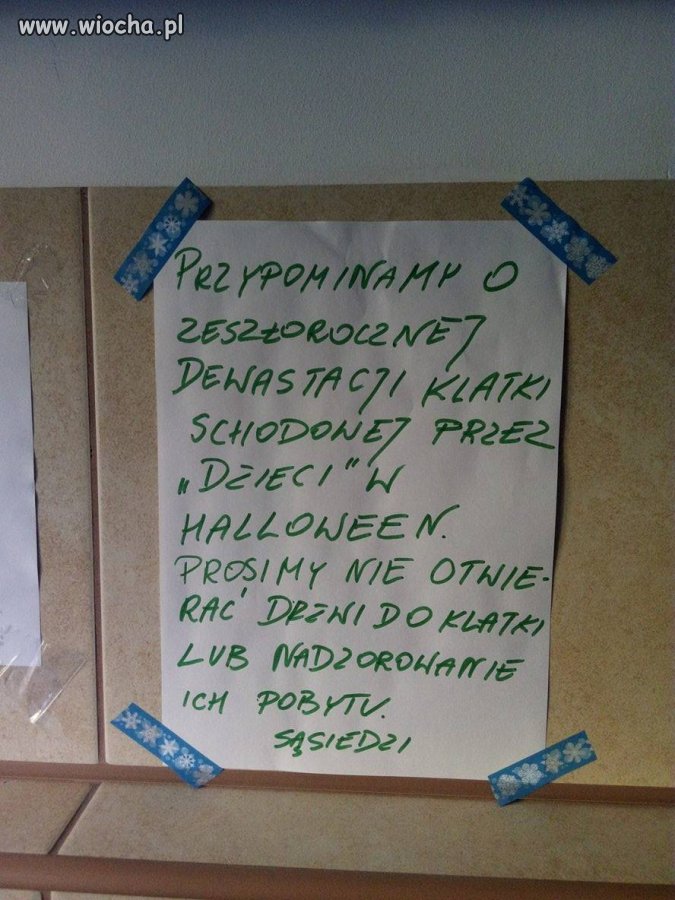 www.wiocha.pl
PRZYPOMINAMY O
ZESZŁOROCZNEJ
DEWASTACJI KLATKI
SCHODOWEJ PRZEZ
„DZIECI” W
HALLOWEEN.
PROSIMY NIE OTWIE-
RAĆ DRZWI DO KLATKI
LUB NADZOROWANIE
ICH POBYTU.
SĄSIEDZI